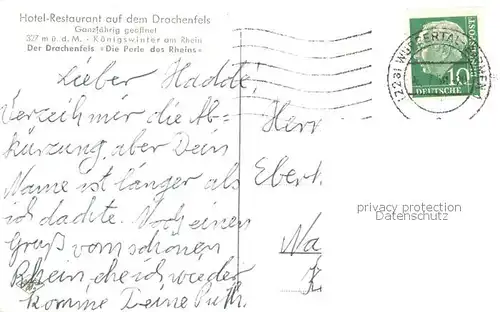 Hotel-Restaurant auf dem Drachenfels
Ganzjährig geöffnet
327 m ü. d. M. - Königswinter am Rhein
Der Drachenfels »Die Perle des Rheins«
Lieber
Verzeih mir die Ab-
kürzung, aber Dein
Name ist länger als
ich dachte. Noch einen
Gruß vom schönen
Rhein, ehe ich wieder
komme Deine Ruth.
Herr
Ebert
Na
K
(22a) WUPPERTAL-BARMEN
DEUTSCHE
BUNDESPOST
10
privacy protection
Datenschutz